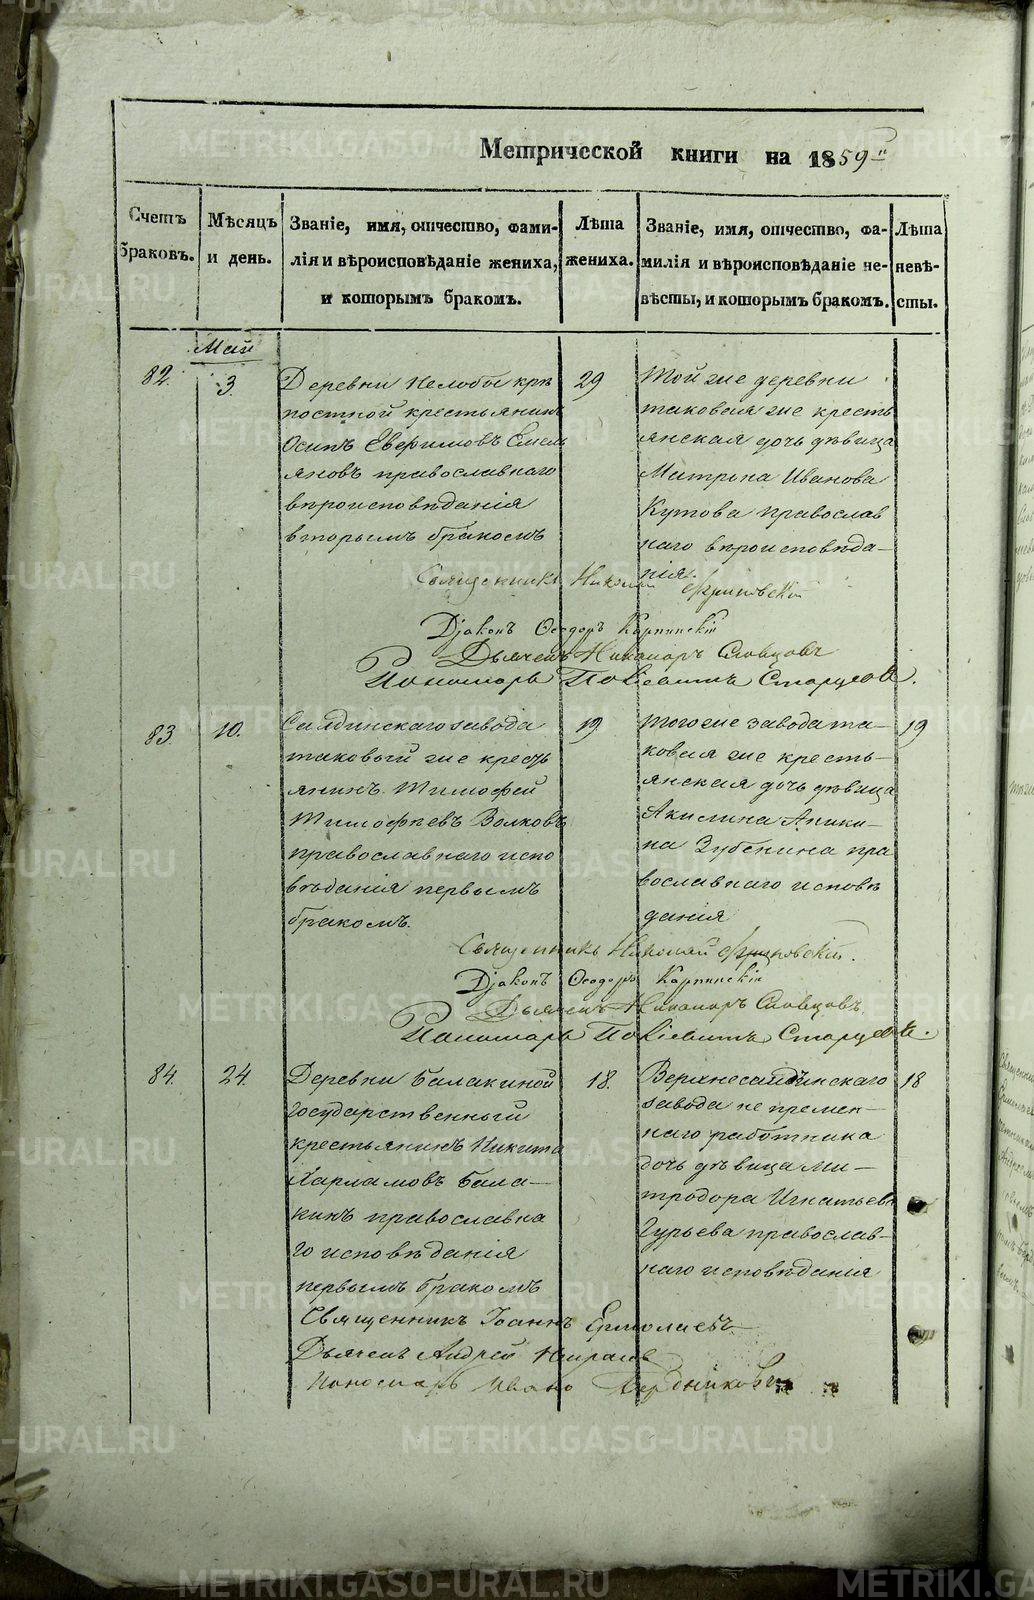 Метрической книги на 1859й
Счетъ браковъ.
Мѣсяцъ и день.
Званіе, имя, отчество, фамилія и вѣроисповѣданіе жениха, и которымъ бракомъ.
Лѣта жениха.
Званіе, имя, отчество, фамилія и вѣроисповѣданіе невѣсты, и которымъ бракомъ.
Лѣта невѣсты.
Май
82.
3.
Деревни Нелобы крѣ
постной крестьянинъ
Осипъ Евфимовъ Емель
яновъ православнаго
вѣроисповѣданія
вторымъ бракомъ
29
Той же деревни
таковая же кресть
янская дочь дѣвица
Матрена Иванова
Кутова православ
наго вѣроисповѣда–
нія.
Священникъ Николай
Дьяконъ Ѳеодоръ Карпинскій
Дьячекъ Никаноръ Словцовъ
Пономарь Старцовъ.
83.
10.
Салдинскаго завода
таковый же кресть
янинъ Тимофей
Тимофѣевъ Волковъ
православнаго испо
вѣданія первымъ
бракомъ.
19.
Того же завода та–
ковая же кресть–
янская дочь дѣвица
Акилина Аники–
на Зубенина пра
вославнаго исповѣ
данія
19
Священникъ Николай
Дьяконъ Ѳеодоръ Карпинскій
Дьячекъ Никаноръ Словцовъ.
Пономарь Старцовъ.
84.
24.
Деревни Балакиной
государственный
крестьянинъ Никита
Харламовъ Бала–
кинъ православна
го исповѣданія
первымъ бракомъ
18.
Верхнесалдинскаго
завода не премен–
наго работника
дочь дѣвица Ми–
тродора Игнатьева
Гурьева православ–
наго исповѣданія
18
Священникъ Іоаннъ Ермолаевъ
Дьячекъ Андрей
Пономарь Иванъ
METRIKI.GASO-URAL.RU